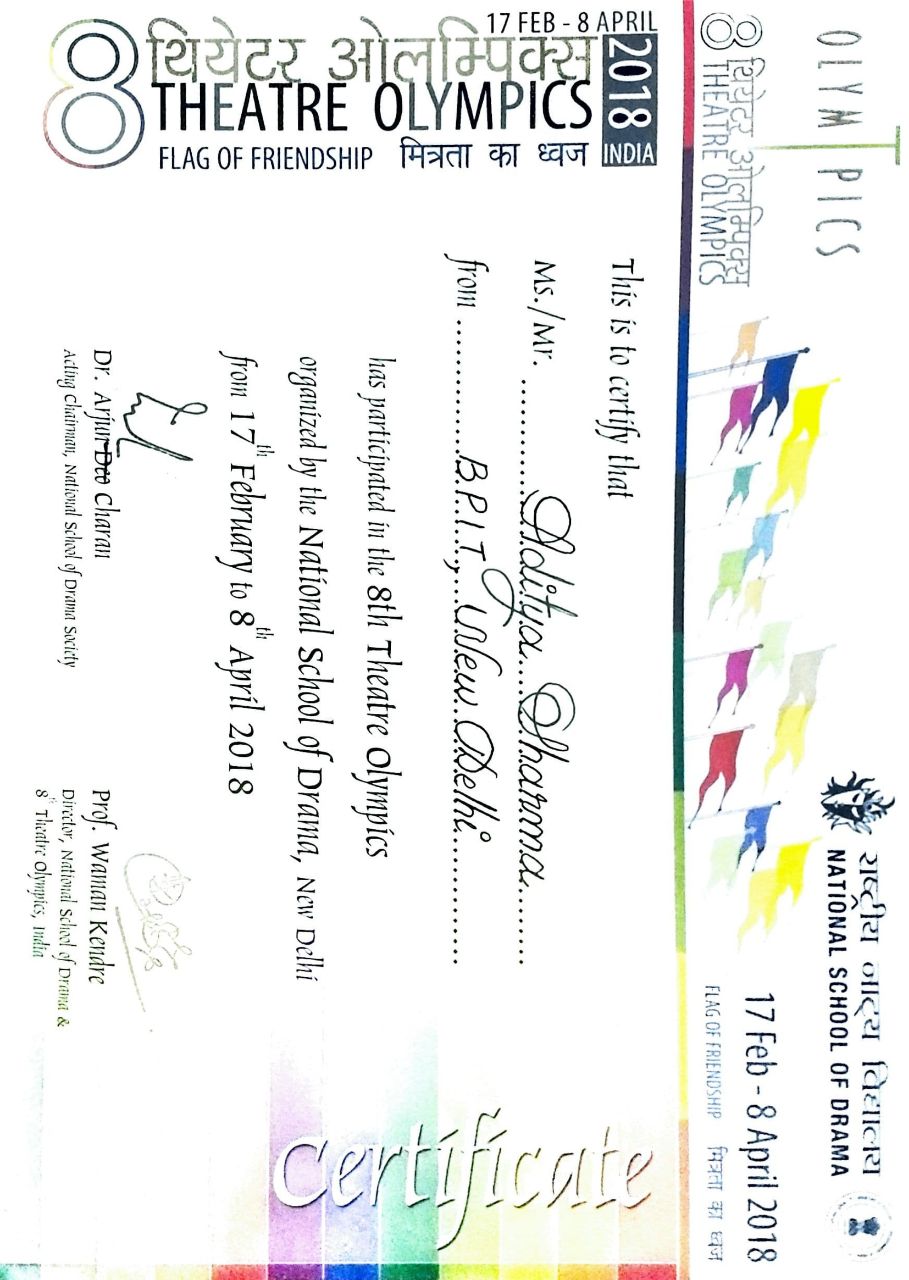 OLYMTPICS
8 थियेटर ओलम्पिक्स
THEATRE OLYMPICS
राष्ट्रीय नाट्य विद्यालय
NATIONAL SCHOOL OF DRAMA
17 Feb - 8 April 2018
FLAG OF FRIENDSHIP मित्रता का ध्वज
17 FEB - 8 APRIL 2018 INDIA
8 थियेटर ओलम्पिक्स
THEATRE OLYMPICS
FLAG OF FRIENDSHIP मित्रता का ध्वज
certificate
This is to certify that
Ms./Mr. Aditya Sharma
from B.P.I.T., New Delhi
has participated in the 8th Theatre Olympics
organized by the National School of Drama, New Delhi
from 17th February to 8th April 2018
Dr. Arjun Deo Charan
Acting Chairman, National School of Drama Society
Prof. Waman Kendre
Director, National School of Drama &
8th Theatre Olympics, India